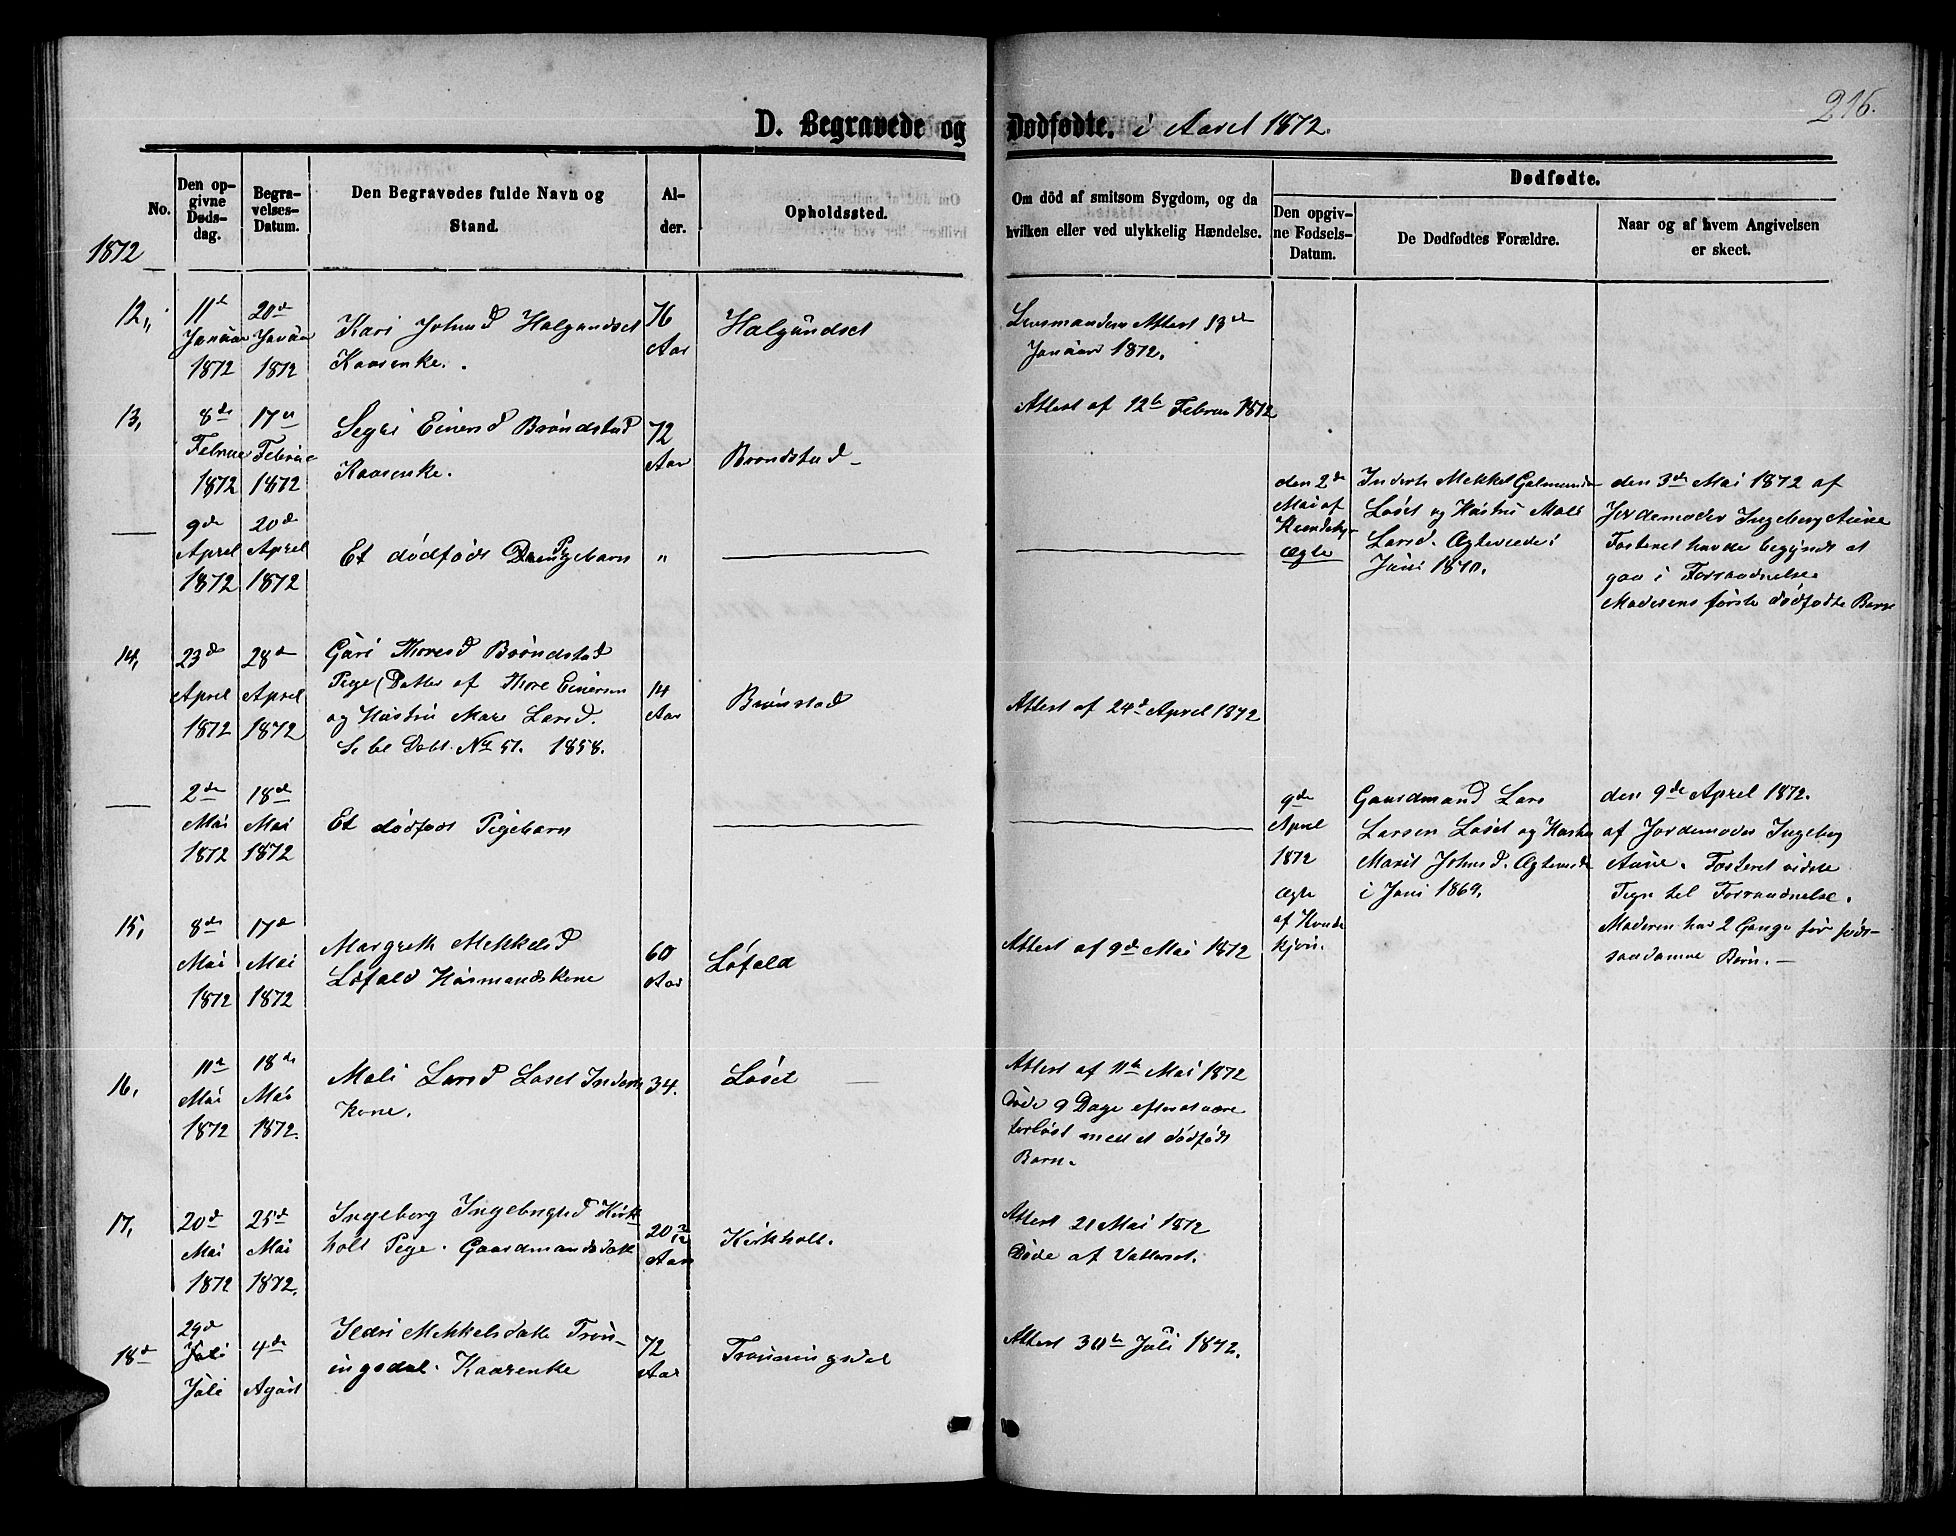 216.
D. Begravede og Dødfødte. i Aaret 1872.
No.
Den op-
givne
Døds-
dag.
Begra-
velses-
Datum.
Den Begravedes fulde Navn og
Stand.
Al-
der.
Opholdssted.
Om död af smitsom Sygdom, og da
hvilken eller ved ulykkelig Hændelse.
Dødfødte.
Den opgiv-
ne Fødsels-
Datum.
De Dødfødtes Forældre.
Naar og af hvem Angivelsen
er skeet.
1872
12,,
11te
Januar
1872
20de
Januar
1872
Kari Johnsd Halgundset
Kaarenke.
76
Aar
Halgundset
Lensmandens Attest 13de
Januar 1872.
13,
8de
Februar
1872
17de
Februar
1872
Segri Einersd Brøndstad
Kaarenke.
72
Aar
Brøndstad
Attest af 12te Februar 1872
9de
April
1872
20de
April
1872
Et dødfødt Drengebarn
"
den 2de
Mai af
Kvindekj-
Ægte
Inderst Mekkel
Løset og Hustru Mali
Larsd. Ægteviede i
Juni 1870.
den 3de Mai 1872 af
Jordemoder Ingeborg Aune
Fosteret havde begyndt at
gaa i Forraadnelse
Moderens første dødfødte Barn
14,
23de
April
1872
28de
April
1872
Guri Thoresd Brøndstad
Pige (Datter af Thore Einersen
og Hustru Mare Larsd.
Se bl Døbt. No 51. 1858.
14
Aar
Brønstad
Attest af 24de April 1872
2de
Mai
1872
18de
Mai
1872
Et dødfødt Pigebarn
9de
April
1872
Ægte
af Kvinde
kjøn.
Gaardmand Lars
Larsen Løset og Hustru
Marit Johnsd. Ægteviede
i Juni 1869.
den 9de April 1872.
af Jordemoder Ingeborg
Aune. Fosteret vidste
Tegn til Forraadnelse.
Moderen har 2 Gange før født
saadanne Børn.
15,
8de
Mai
1872
17de
Mai
1872
Margreth Mekkelsd
Løfald Husmandskone
60
Aar
Løfald
Attest af 9de Mai 1872
16,
11te
Mai
1872
18de
Mai
1872.
Mali Larsd Løset Inderst
Kone.
34.
Løset
Attest af 11te Mai 1872
Døde 9 Dage efter at være
forløst med et dødfødt
Barn.
17,
20de
Mai
1872
25de
Mai
1872.
Ingeborg Ingebrigtsd Kirk
holt Pige. Gaardmandsdatt
20
Aar
Kirkholt.
Attest 21 Mai 1872
Døde af Vattersot.
18de
29de
Juli
Juli
4de
August
Ildri Mekkelsdatt Trøn-
ingsdal. Kaarenke
72
Aar
Trønningsdal
Attest 30te Juli 1872.